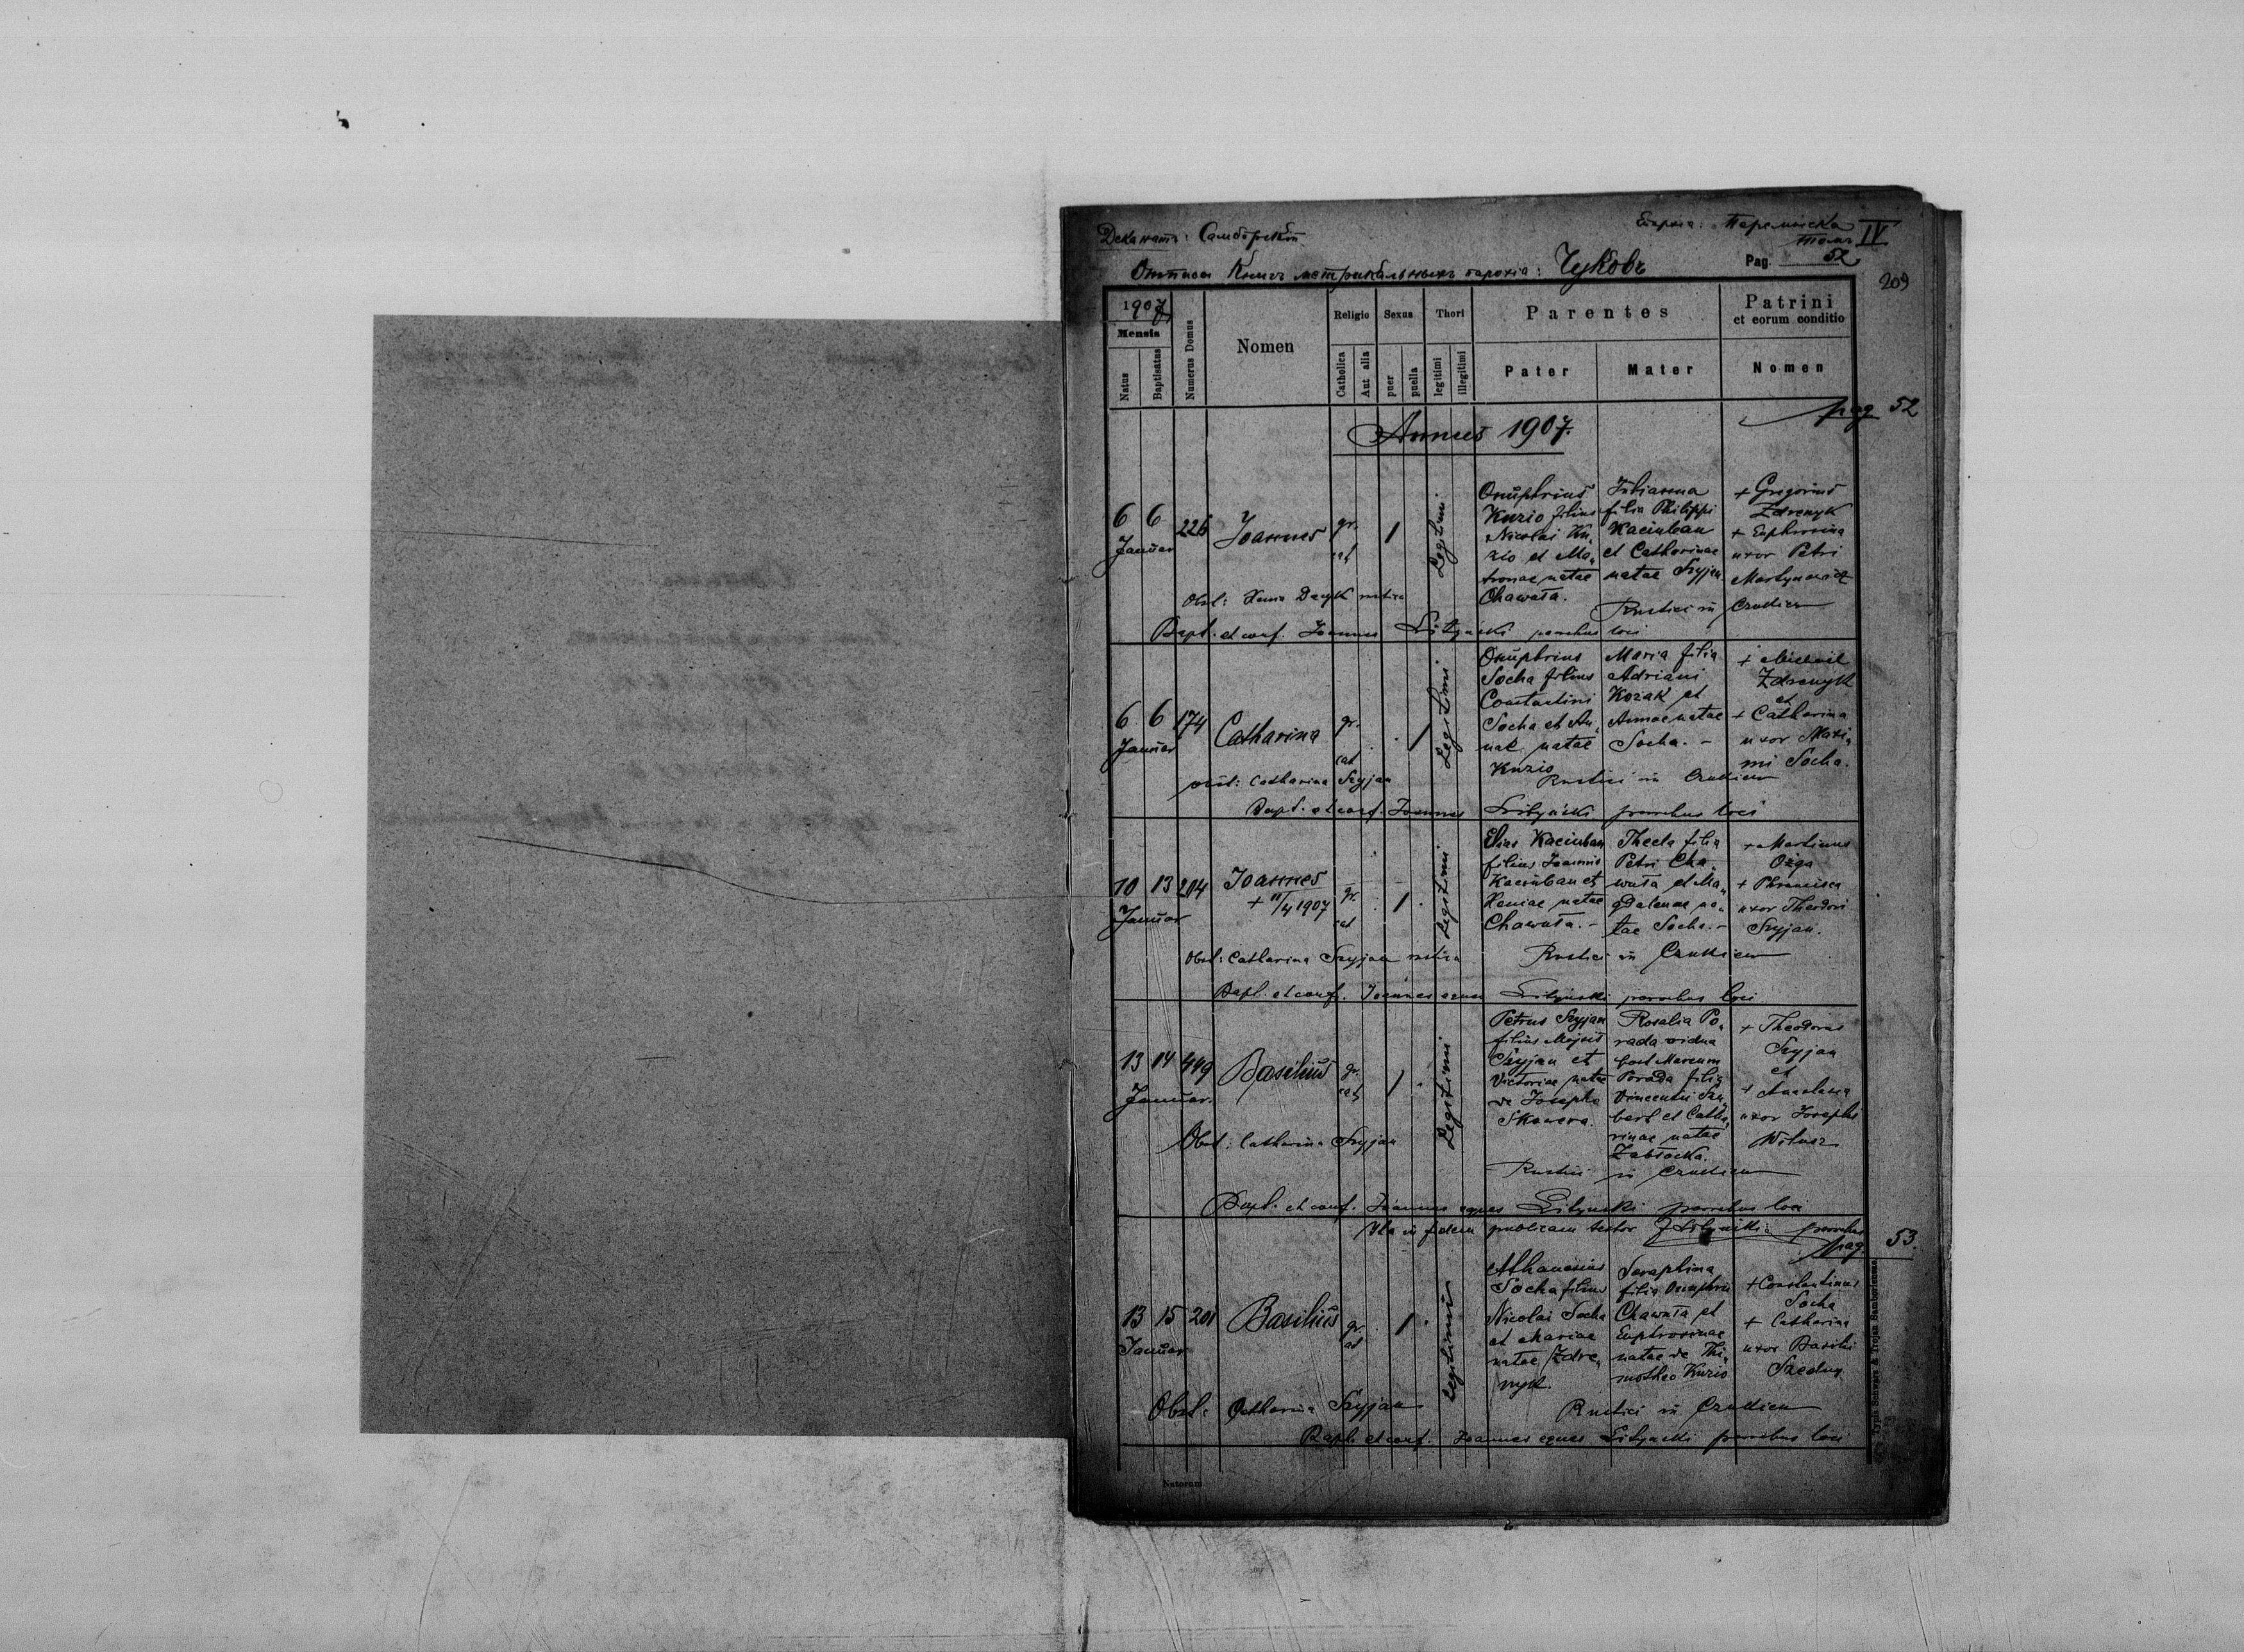 Деканатъ: Самборскій
Епархіа: Перемиска
Томъ IV
Отписи Книгъ метрикальныхъ парохіа: Чуковъ
Pag. 52
209
1907
Mensis
Natus
Baptisatus
Numerus Domus
Nomen
Religio
Catholica
Aut alia
Sexus
puer
puella
Thori
legitimi
illegitimi
Parentes
Pater
Mater
Patrini
et eorum conditio
Nomen
pag 52
Annus 1907.
6 6 226 Joannes gr. 1 Legitimi
Januar cat
Onuphrius
Kuzio filius
Nicolai Ku„
zio et Ma„
tronae natae
Chawała.
Julianna
filia Philippi
Kaciuban
et Catharinae
natae Szyjan
+ Gregorius
Zdrenyk
+ Euphrosina
uxor Petri
Martynowicz
Obst: Xenia Decyk
Rustici in Czukiew
Bapt. et conf. Joannes Lityński parochus loci
6 6 174 Catharina gr. 1 Legitimi
Januar cat
Onuphrius
Socha filius
Constantini
Socha et An„
nae natae
Kuzio
Maria filia
Adriani
Kozak et
Annae natae
Socha. -
+ Michael
Zdrenyk
et
+ Catharina
uxor Maxi„
mi Socha.
obst: Catharina Szyjan
Rustici in Czukiew
Bapt. et conf. Joannes Lityński parochus loci
10 13 204 Joannes gr. 1 Legitimi
Januar + 11/4 1907 cat
Elias Kaciuban
filius Joannis
Kaciuban et
Xeniae natae
Chawała. -
Thecla filia
Petri Cha„
wała et Ma„
gdalenae na„
tae Socha. -
+ Martinus
Ożga
+ Phrancisca
uxor Theodori
Szyjan.
Obst: Catharina Szyjan
Rustici in Czukiew
Bapt. et conf. Joannes eques Lityński parochus loci
13 14 449 Basilius gr. 1 Legitimi
Januar. cat
Petrus Szyjan
filius Moysis
Szyjan et
Victoriae natae
de Josepho
Skowera.
Rosalia Po„
rada vidua
post Marcum
Porada filia
Vincentii Szu„
bert et Catha„
rinae natae
Zabłocka.
+ Theodorus
Szyjan
et
+ Anastasia
uxor Josephi
Witusz
Obst: Catharina Szyjan
Rustici in Czukiew
Bapt. et conf. Joannes eques Lityński parochus loci
Ita in fidem publicam testor J Lityński parochus
pag. 53.
13 15 201 Basilius gr. 1 Legitimi
Januar cat
Athanasius
Socha filius
Nicolai Socha
et Mariae
natae Zdre„
nyk.
Seraphina
filia Onuphrii
Chawała et
Euphrosinae
natae de Thi„
motheo Kuzio
+ Constantinus
Socha
+ Catharina
uxor Basilii
Obst: Catharina Szyjan
Rustici in Czukiew
Bapt. et conf. Joannes eques Lityński parochus loci
Typis Schwarz & Trojan Samboriensis
Natorum